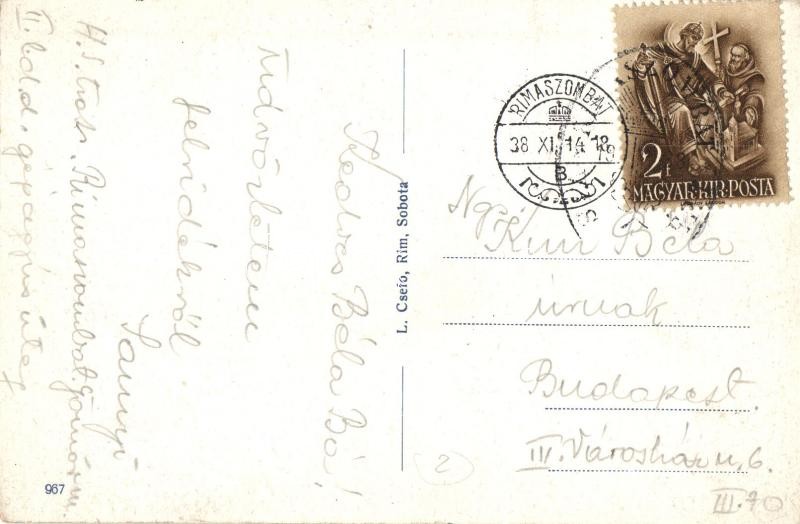 Kedves Béla Bá!
Üdvözletem
felvidékről
Sanyi
H. S. tőr. Rimaszombat, Gömör m.
II. bd. d. gépágyús üteg
L. Csefo, Rim, Sobota
967
RIMASZOMBAT
38 XI. 14 18
B
2 f
MAGYAR·KIR·POSTA
Ng.
Kun Béla
úrnak
Budapest.
IV. Városház u. 6.
2
III. 70